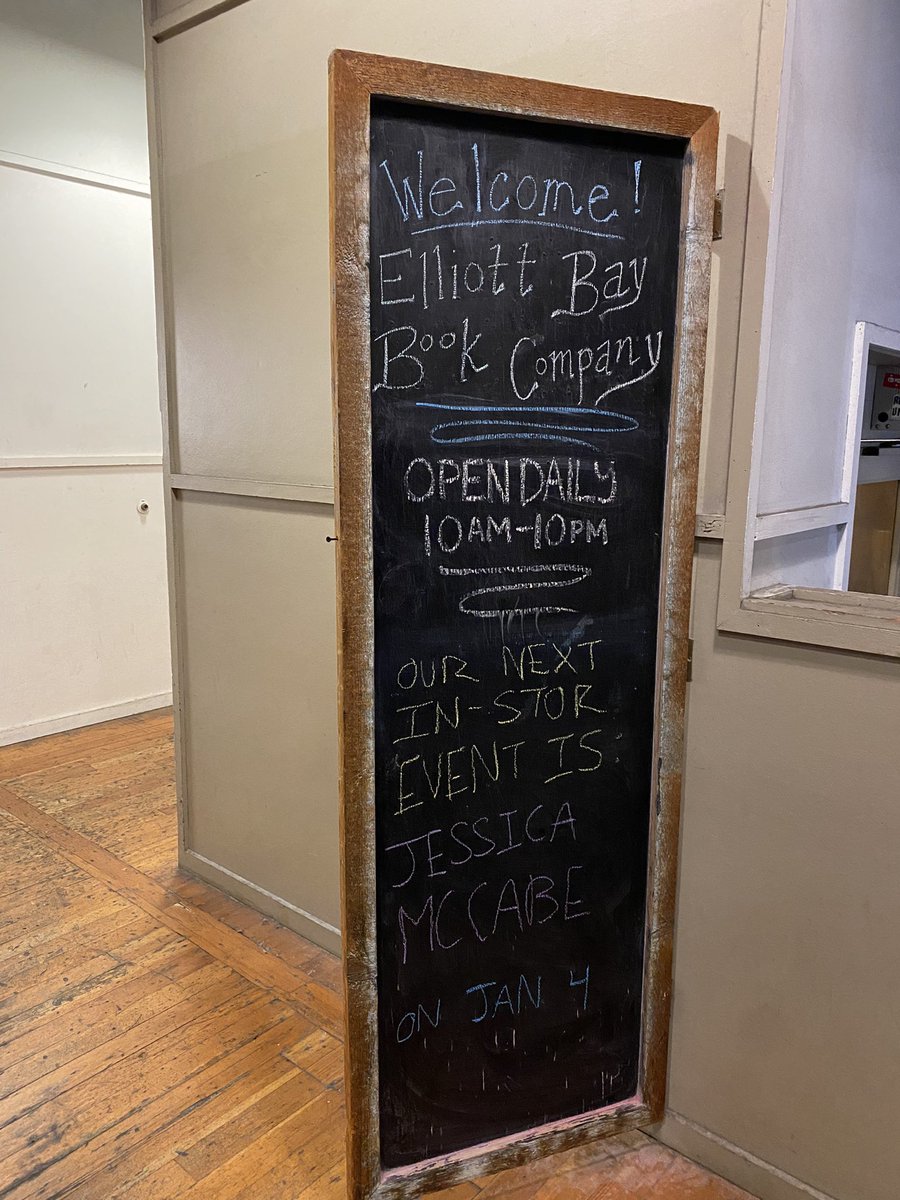 Welcome!
Elliott Bay
Book Company
OPEN DAILY
10AM-10PM
OUR NEXT
IN-STOR
EVENT IS:
JESSICA
MCCABE
ON JAN 4